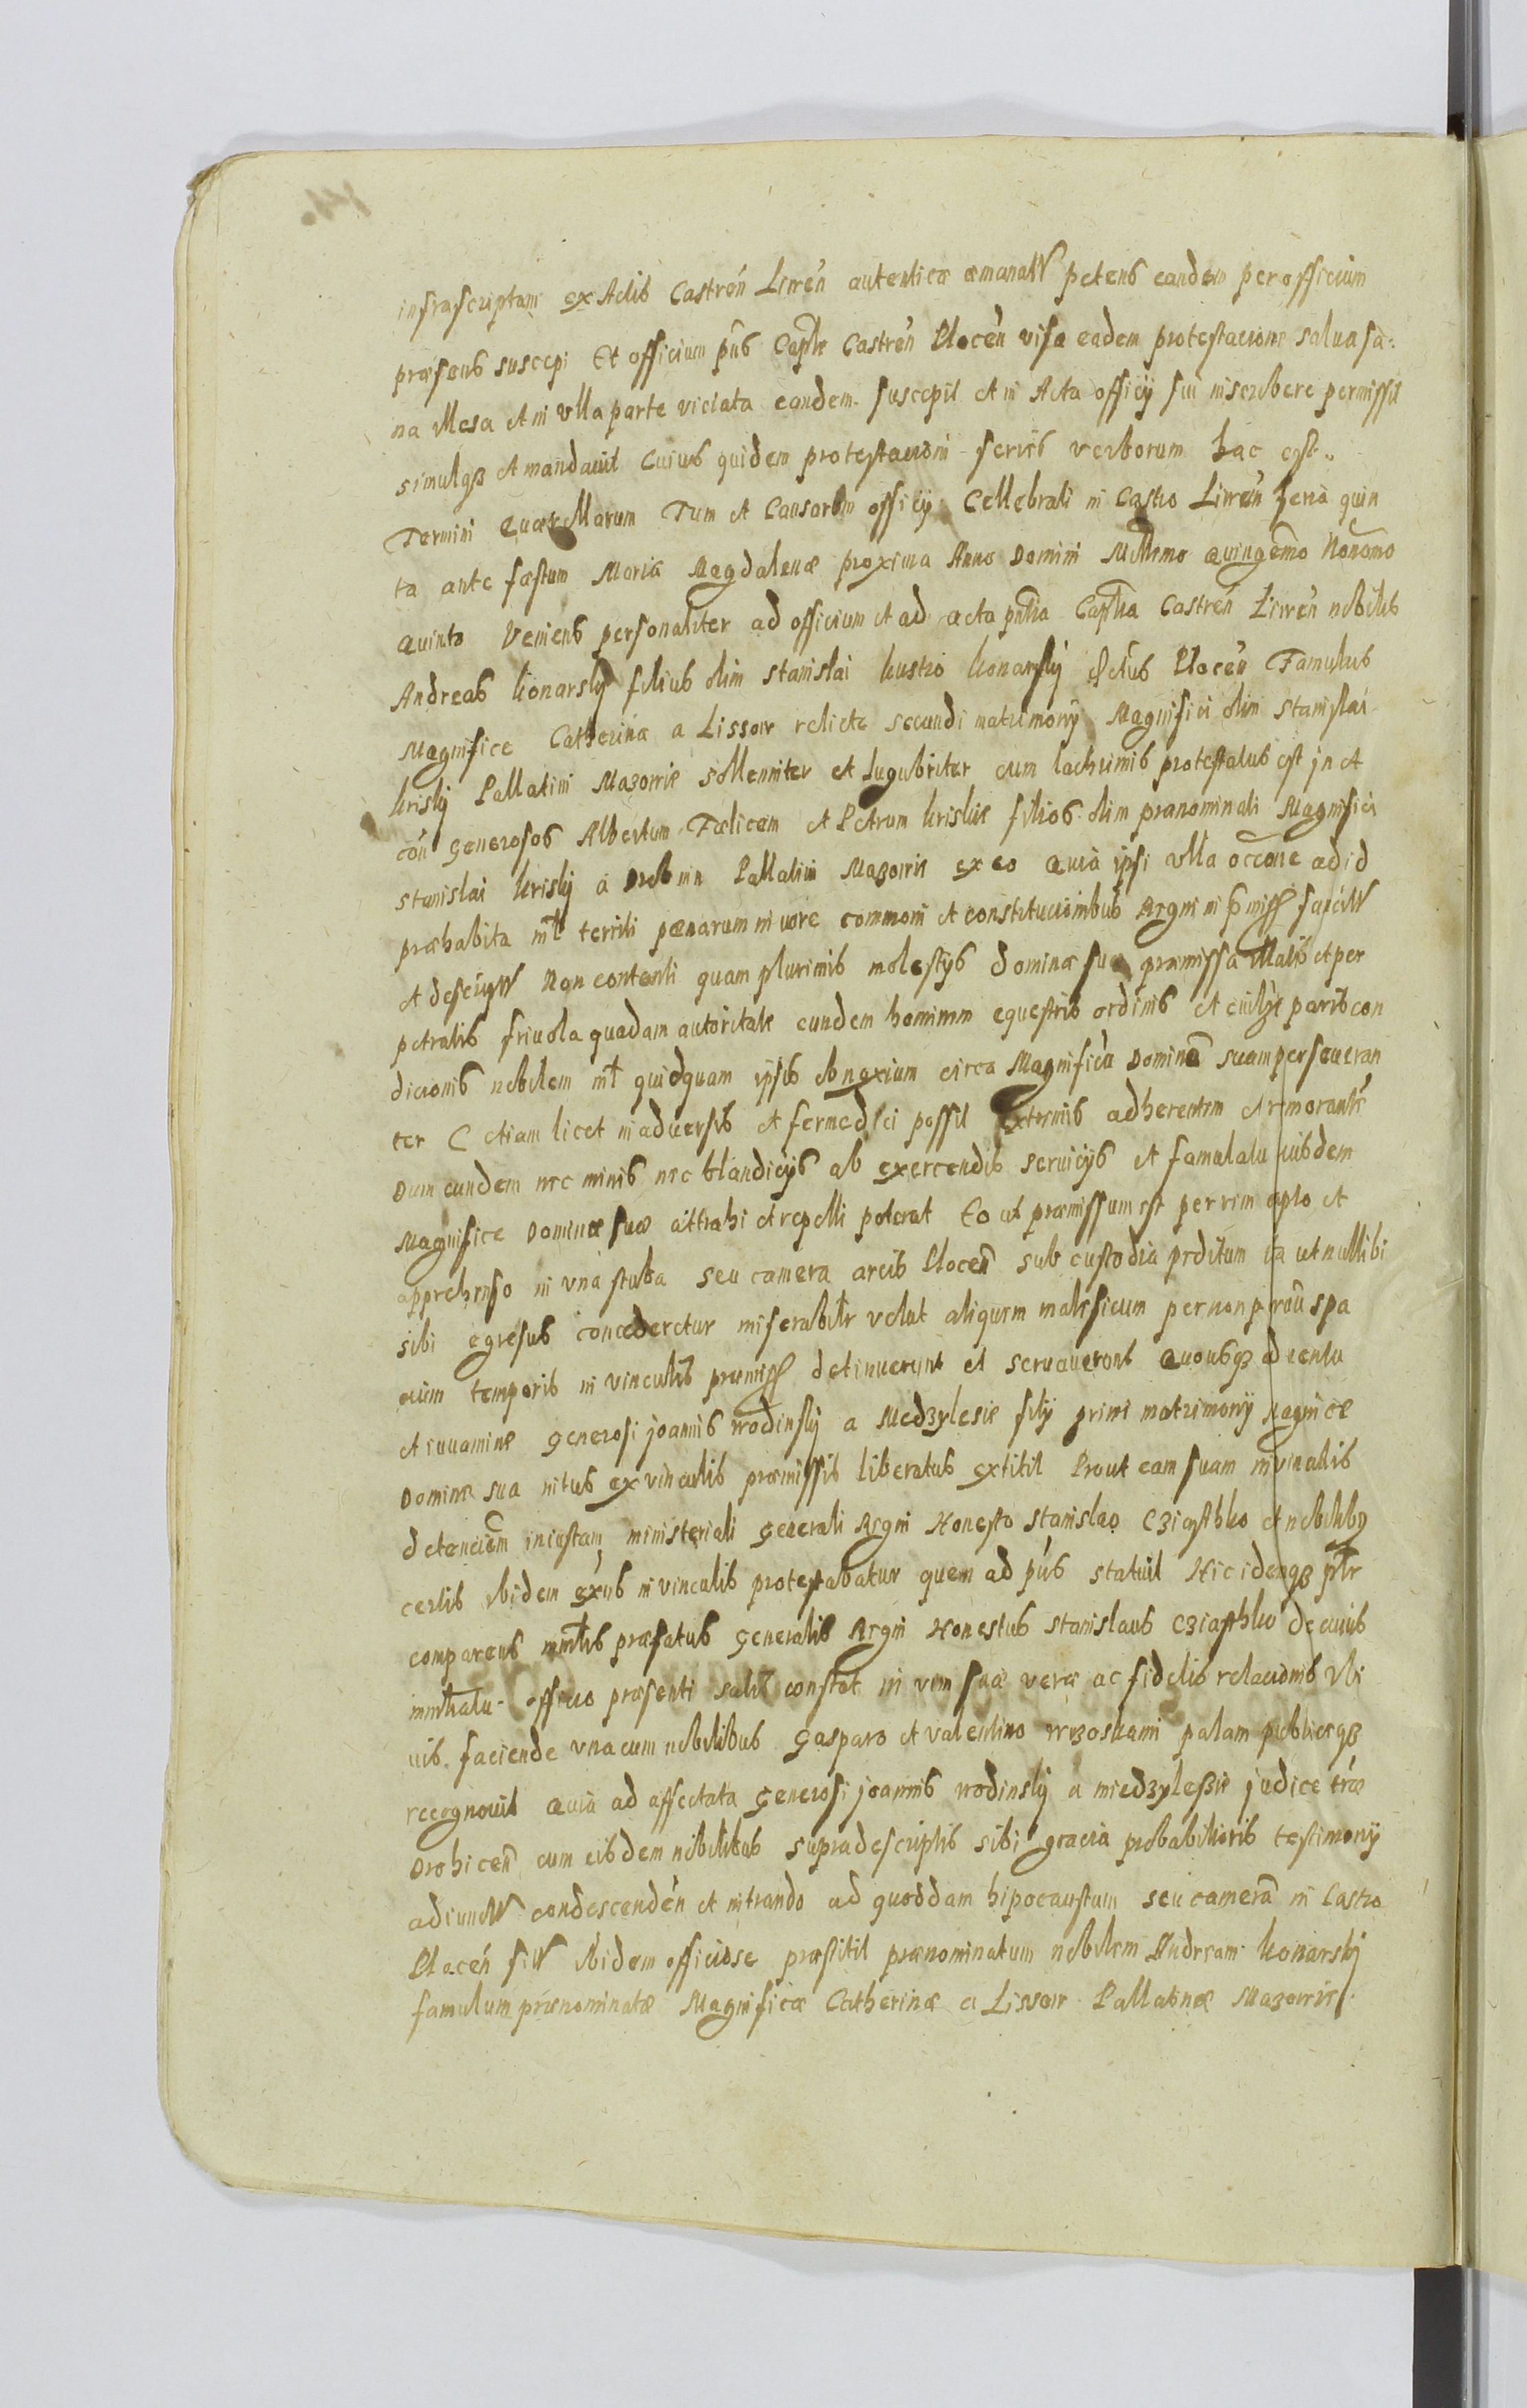 infrascriptam ex Actis Castren Liwen autentice emanatt petens eandem per officium
præsens suscepi Et officium pns Capthle Castren Plocen visa eadem protestacione salua sa:
na illesa et in vlla parte viciata eandem suscepit et in Acta officij sui inscribere permissit
simulqз et mandauit Cuius quidem protestacioni series verborum hæc est..
Termini Quærellarum Tum et Causarum officij Cellebrati in Castro Liwen feria quin
ta ante fæstum Mariæ Magdalenæ proxima Anno Domini Millmo Quingemo Nonamo
Quinto Veniens personaliter ad officium et ad acta pntia Captlia Castren Liwen nobilis
Andreas Konarsky filius olim Stanislai Kustro Konarsky Plocen Famulus
Magnifice Catherinæ a Lissow relicte secundi matrimonij Magnifici olim Stanislai
Krisky Pallatini Mazowie sollenniter et lugubriter cum lachrimis protestatus est jn et
con Generosos Albertum Fœlicem et Petrum Kriskie filios olim prænominati Magnifici
Stanislai Krisky a Drobnin Pallatini Mazowie ex eo Quia ipsi vlla occone ad id
præhabita nil territi pœnarum in iure commoni et constitucionibus Regni in pmiss sancitt
et descript Non contenti quam plurimis molestijs dominæ suæ præmissa illatis et per
petratis friuola quadam autoritate eundem hominem equestris ordinis et ciuilz paris con
dicionis nobilem nil quidquam ipsis obnoxium circa Magnificã Dominã suam perseueran
ter C etiam licet in aduersis et ferme dici possit Extremis adherentem et remorante
Dum eundem nec minis nec blandicijs ab exercendis seruicijs et famulatu eiusdem
Magnifice Dominæ suæ attrahi et repelli poterat Eo ut præmissum est per vim apto et
apprehenso in vna stuba seu camera arcis Plocen sub custodia prditum ita ut nullibi
sibi egresus concederetur miserabilr velut aliquem maleficum per non paruũ spa
cium temporis in vinculis præmiss detinuerunt et seruauerunt Quousqз aduentu
et iuuamine Generosi joannis wodinsky a Medzylesie filij primi matrimonij Magnicæ
Dominæ suæ nitus ex vinculis præmissis liberatus extitit Prout eam suam in vinculis
detencioem iniustam ministeriali Generali Regni Honesto Stanislao Cziasthko et nobilibus
certis ibidem exns in vinculis protestabatur quem ad pns statuit Hic idemqз psltr
comparens mntlis præfatus Generalis Regni Honestus Stanislaus Cziasthko de cuius
mntliatu officio præsenti salte constat in vim suæ veræ ac fidelis relacionis Vbi
uis faciende vna cum nobilibus Gasparo et Valentino wrzoskami palam publiceqз
recognouit Quia ad affectata Generosi joannis wodinsky a miedzylesie judice træ
Drohicen cum eisdem nobilibus supradescriptis sibi gracia probabilioris testimonij
adiunctt condescenden et intrando ad quoddam hipocaustum seu camerã in Castro
Placen sitt ibidem officiose præstitit prænominatum nobilem Andream Konarsky
famulum prænominatæ Magnificæ Catherinæ a Lissow Pallatinæ Mazowie